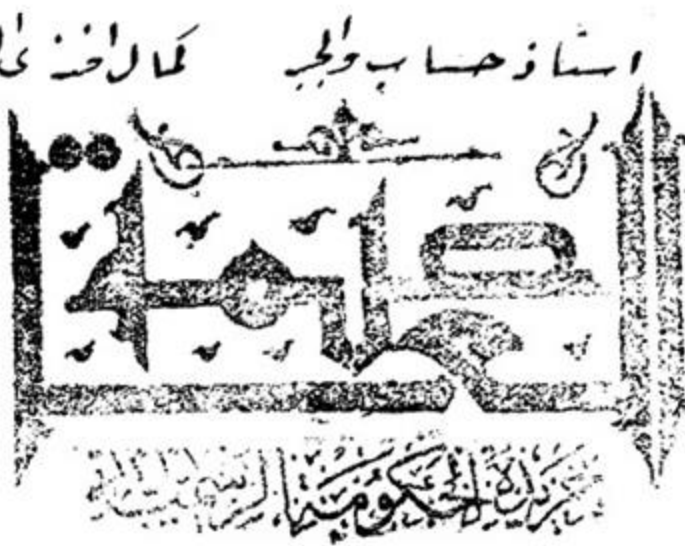 استاذ حساب والجبر كمال افندى
العاصمة
جريدة الحكومة الرسمية